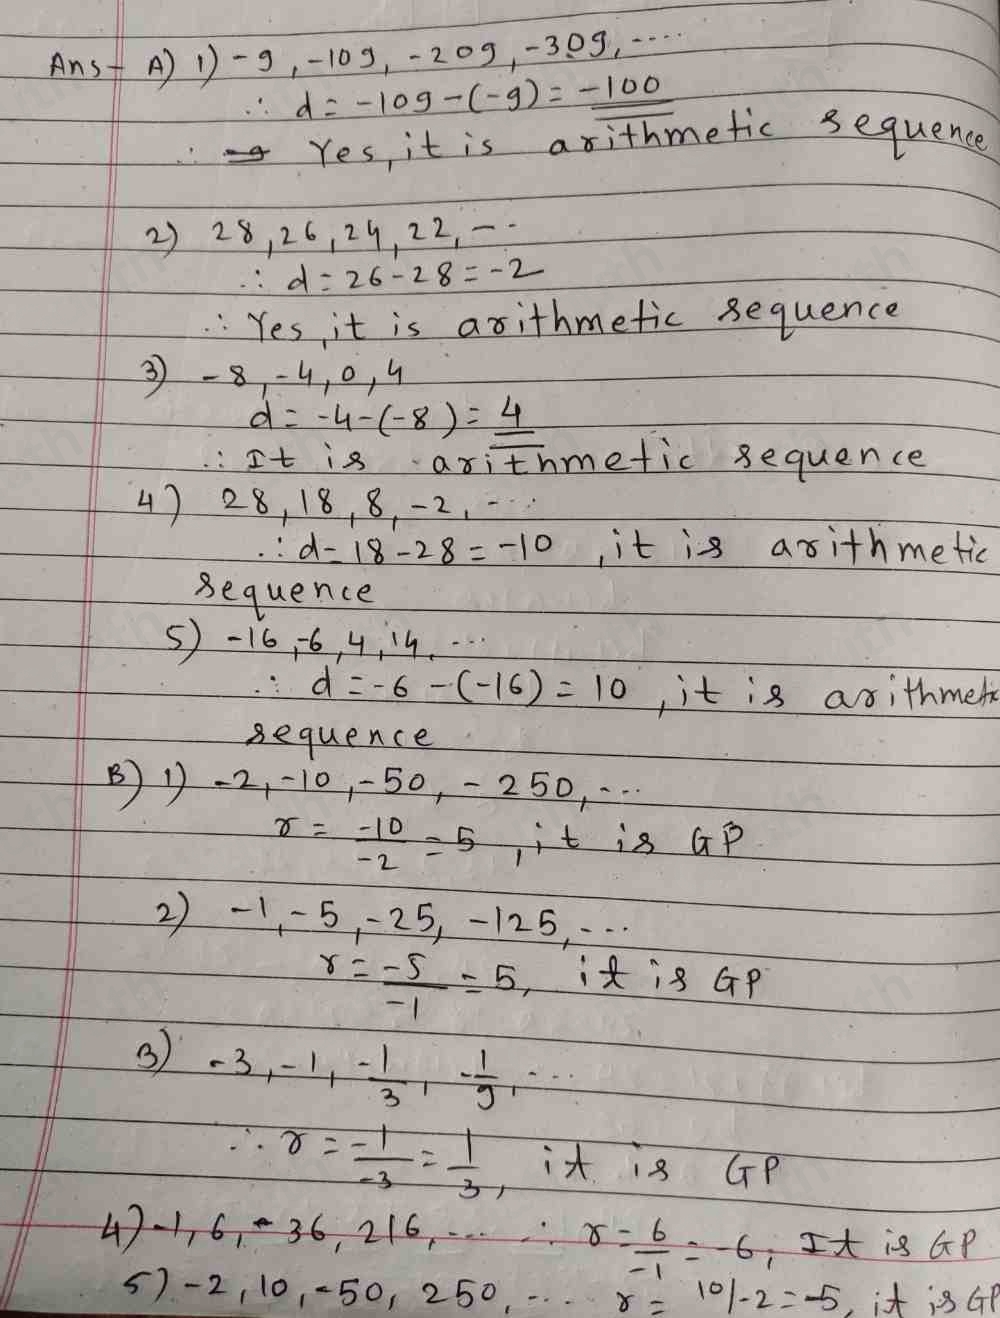 Ans- A) 1) -9, -109, -209, -309, ....
∴ d = -109-(-9) = -100
∴ Yes, it is arithmetic sequence
2) 28, 26, 24, 22, ...
∴ d = 26-28 = -2
∴ Yes, it is arithmetic sequence
3) -8, -4, 0, 4
d = -4-(-8) = 4
∴ It is arithmetic sequence
4) 28, 18, 8, -2, ...
∴ d = 18-28 = -10, it is arithmetic
sequence
5) -16, -6, 4, 14, ...
∴ d = -6-(-16) = 10, it is arithmetic
sequence
B) 1) -2, -10, -50, -250, ...
r = -10/-2 = 5, it is GP
2) -1, -5, -25, -125, ...
r = -5/-1 = 5, it is GP
3) -3, -1, -1/3, -1/9, ...
∴ r = -1/-3 = 1/3, it is GP
4) -1, 6, -36, 216, .... ∴ r = 6/-1 = -6, It is GP
5) -2, 10, -50, 250, .... r = 10/-2 = -5, it is GP